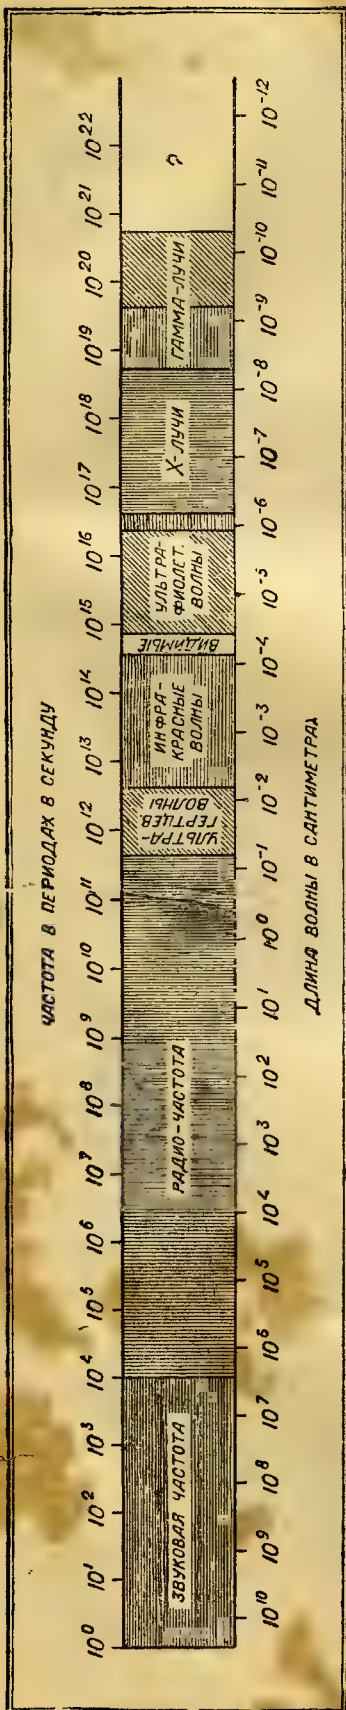 ЧАСТОТА В ПЕРИОДАХ В СЕКУНДУ
10⁰ 10¹ 10² 10³ 10⁴ 10⁵ 10⁶ 10⁷ 10⁸ 10⁹ 10¹⁰ 10¹¹ 10¹² 10¹³ 10¹⁴ 10¹⁵ 10¹⁶ 10¹⁷ 10¹⁸ 10¹⁹ 10²⁰ 10²¹ 10²²
ЗВУКОВАЯ ЧАСТОТА
РАДИО-ЧАСТОТА
УЛЬТРА-
ГЕРТЦЕВ
ВОЛНЫ
ИНФРА-
КРАСНЫЕ
ВОЛНЫ
ВИДИМЫЕ
УЛЬТРА-
ФИОЛЕТ.
ВОЛНЫ
Х-ЛУЧИ
ГАММА-ЛУЧИ
?
10¹⁰ 10⁹ 10⁸ 10⁷ 10⁶ 10⁵ 10⁴ 10³ 10² 10¹ 10⁰ 10⁻¹ 10⁻² 10⁻³ 10⁻⁴ 10⁻⁵ 10⁻⁶ 10⁻⁷ 10⁻⁸ 10⁻⁹ 10⁻¹⁰ 10⁻¹¹ 10⁻¹²
ДЛИНА ВОЛНЫ В САНТИМЕТРАХ